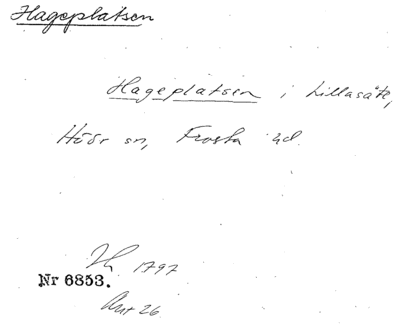 Hageplatsen
Hageplatsen i Lillasäte,
Höör sn, Frosta hd.
1797
Nr 6853.
26